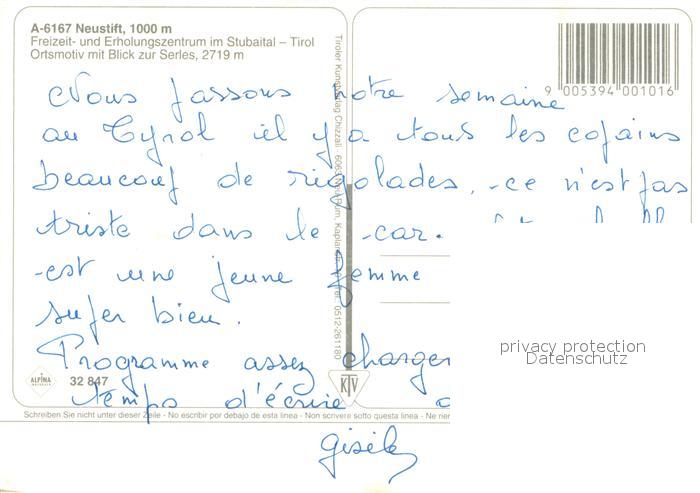 A-6167 Neustift, 1000 m
Freizeit- und Erholungszentrum im Stubaital – Tirol
Ortsmotiv mit Blick zur Serles, 2719 m
9 005394 001016
Nous passons notre semaine
au Tyrol il y a tous les copains
beaucoup de rigolades, ce n'est pas
triste dans le car.
est une jeune femme
super bien.
Programme assez charger
temps d'écrire
Gisèle
Tiroler Kunstverlag Chizzali - 6063 Neu-Rum, Kaplanstr. Tel. 0512-261180
privacy protection
Datenschutz
ALPINA
32 847
KTV
Schreiben Sie nicht unter dieser Zeile - No escribir por debajo de esta linea - Non scrivere sotto questa linea - Ne